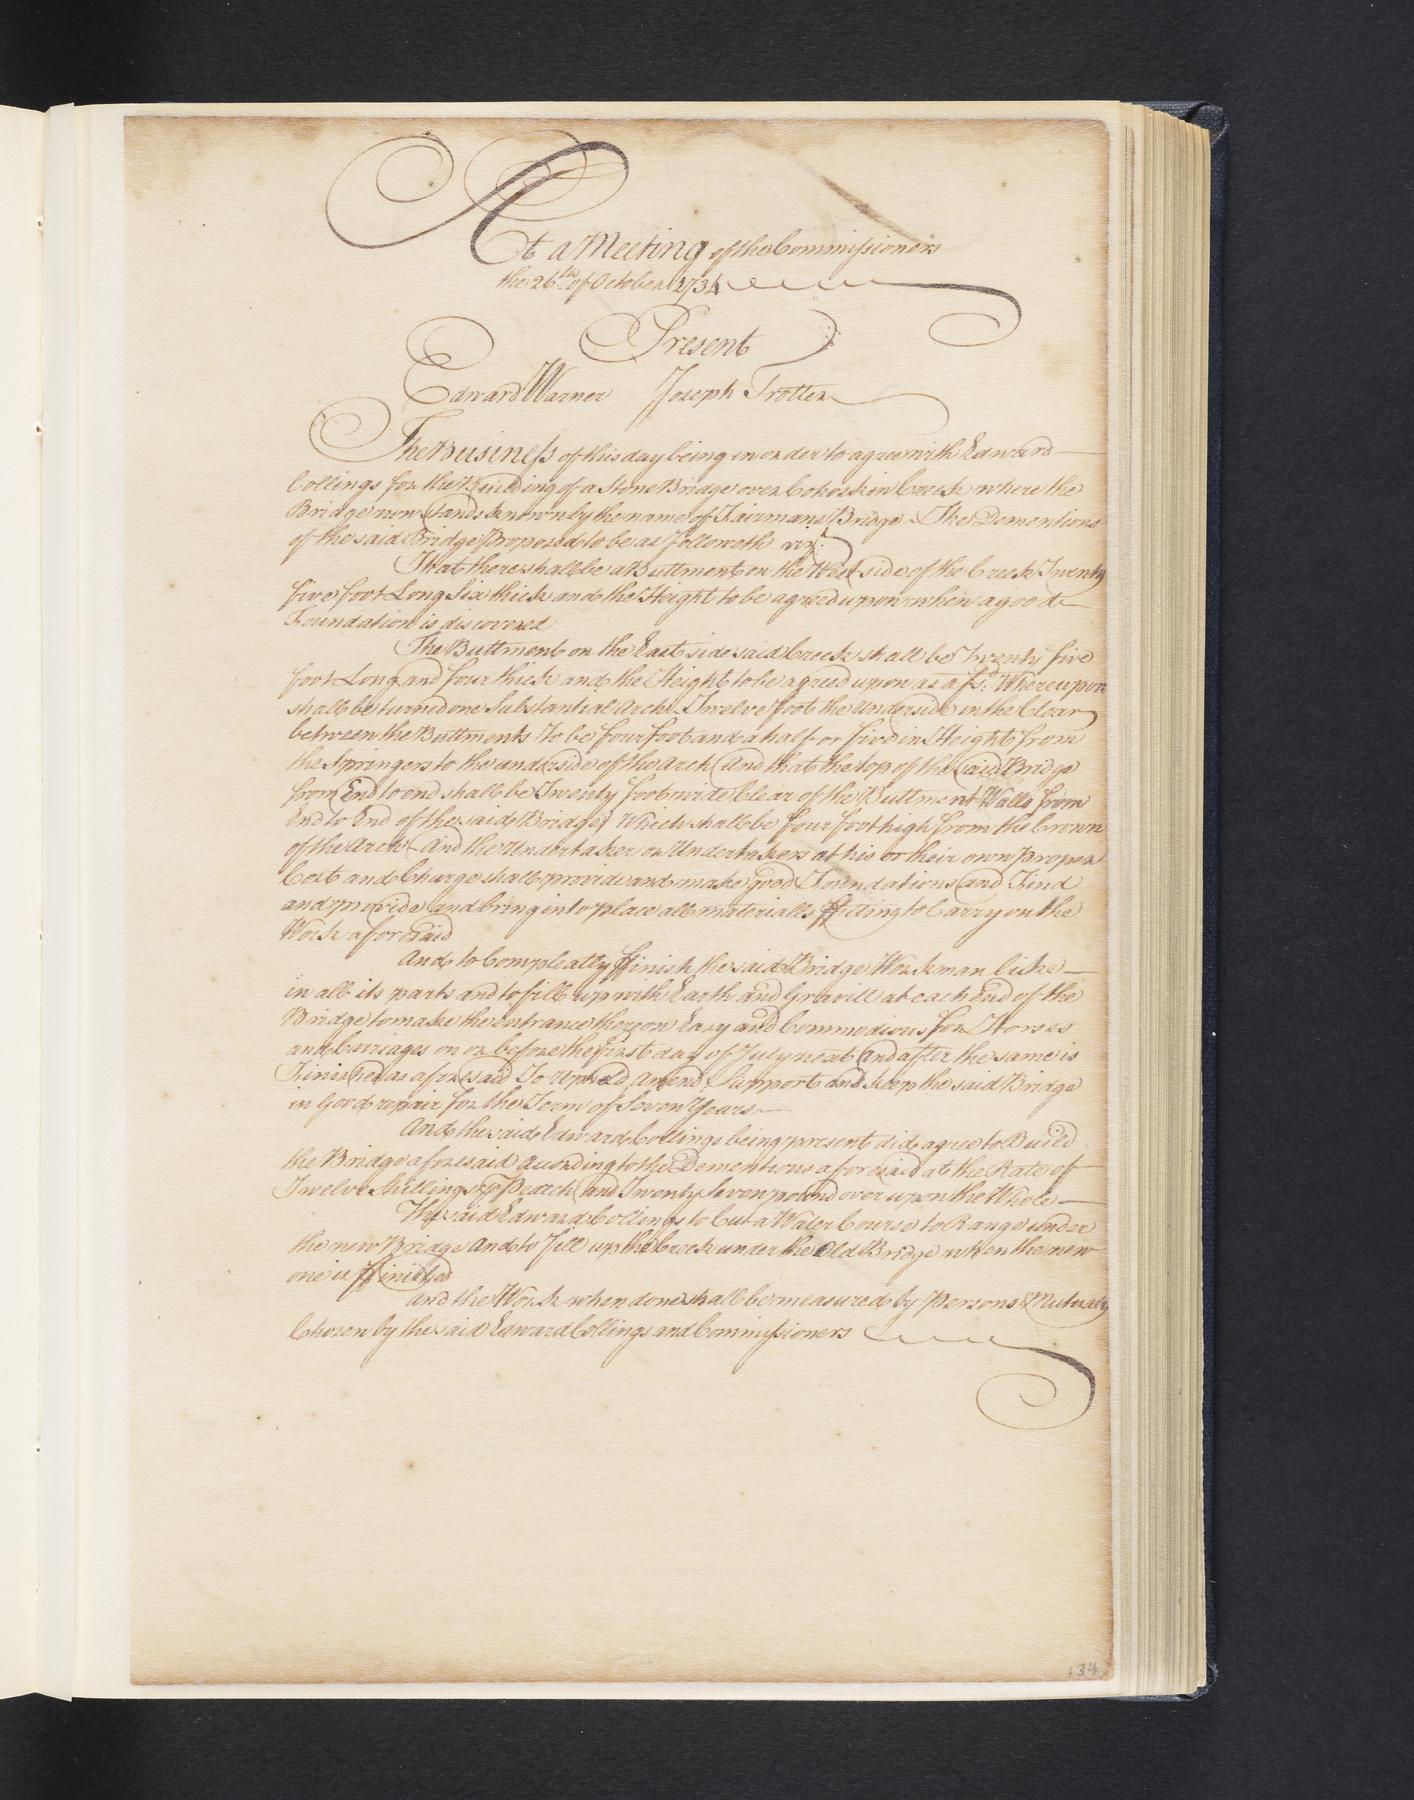 At a Meeting of the Commissioners
the 26th of October 1734
Present
Edward Warner Joseph Trotter
The Business of this day being in order to agree with Edward
Collings for the Building of a Stone Bridge over Cohoskin Creek where the
Bridge now stands known by the name of Fairmans Bridge The Dementions
of the said Bridge Proposed to be as Followeth viz.
That there shall be a Buttment on the West side of the Creek Twenty
five foot Long Six thick and the Height to be agreed upon when a good
Foundation is discovered
The Buttment on the East side said Creek shall be Twenty five
foot Long and four thick and the Height to be agreed upon as a fsd. Whereupon
shall be turned one Substantial Arch Twelve foot the Underside in the Clear
between the Buttments To be four foot and a half or five in Height from
the Springers to the underside of the Arch And that the top of the said Bridge
from End to end shall be Twenty foot wide Clear of the Buttment Walls from
End to End of the said Bridge Which shall be four foot high from the Crown
of the Arch And the Undertaker or Undertakers at his or their own Proper
Cost and Charge shall provide and make good Foundations and Find
and provide and bring into place all materialls ffitting to Carry on the
Work aforesaid
And to Compleatly ffinish the said Bridge Workman licke
in all its parts and to fill up with Earth and Gravill at each End of the
Bridge to make the entrance thereon Easy and Commodious for Horses
and Carriages on or before the first day of July next And after the same is
Finished as aforesaid To Uphold Amend Support and keep the said Bridge
in Good repair for the Term of Seven Years
And the said Edward Collings being present did agree to Build
the Bridge aforesaid According to the Dementions aforesaid at the Rate of
Twelve Shillings p Pearch and Twenty Seven pound over upon the Whole
The said Edward Collings to Cut a Water Course to Range under
the new Bridge And to Fill up the Creek under the Old Bridge when the new
one is ffinished
And the Work when done shall be measured by Persons Mutualy
Chosen by the said Edward Collings and Commissioners
134